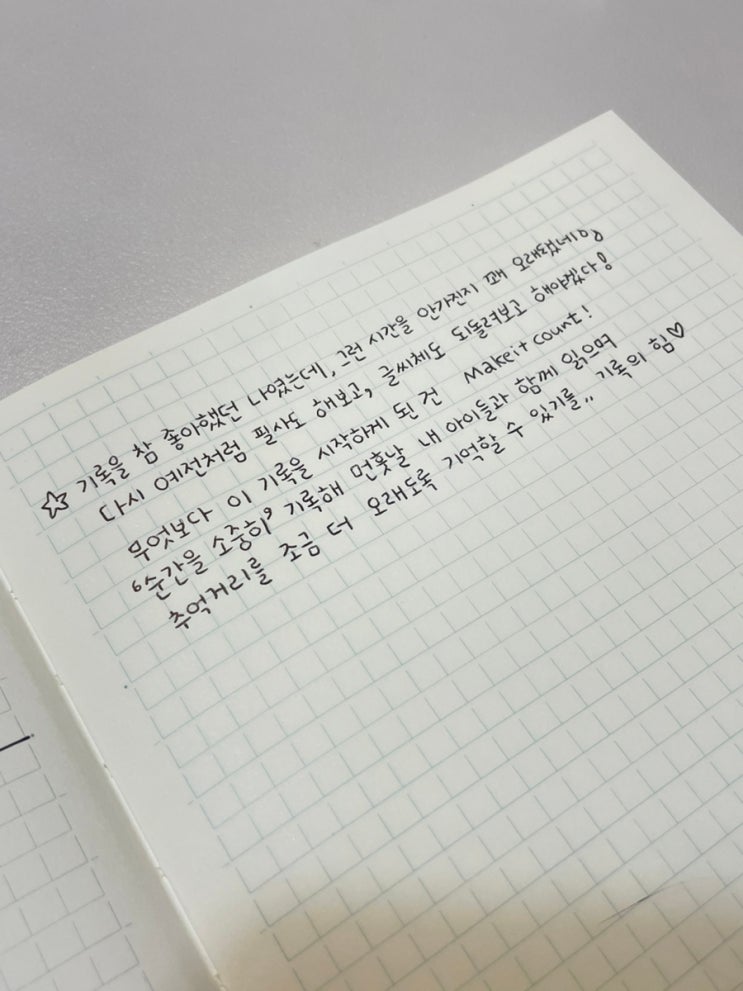 ☆ 기록을 참 좋아했던 나였는데, 그런 시간을 안가진지 꽤 오래됐네요
다시 예전처럼 필사도 해보고, 글씨체도 되돌려보고 해야겠다!
무엇보다 이 기록을 시작하게 된 건 Make it count!
'순간을 소중히' 기록해 먼훗날 내 아이들과 함께 읽으며
추억거리를 조금 더 오래도록 기억할 수 있기를,, 기록의 힘♡